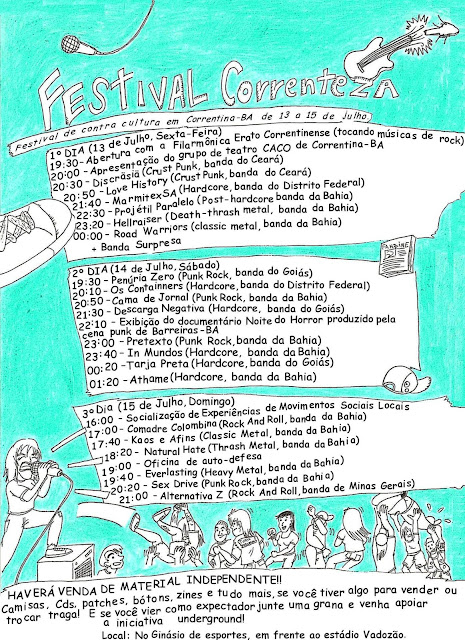 FESTIVAL CorrenteZA
Festival de contra cultura em Correntina-BA de 13 a 15 de Julho
1º DIA (13 de Julho, Sexta-Feira)
19:30- Abertura com a Filarmônica Erato Correntinense (tocando músicas de rock)
20:00 - Apresentação do grupo de teatro CACO de Correntina-BA
20:30 - Discrásia (Crust Punk, banda do Ceará)
20:50 - Love History (Crust Punk, banda do Ceará)
21:40 - MarmitexSA (Hardcore, banda do Distrito Federal)
22:30 - Projétil Paralelo (Post-hardcore banda da Bahia)
23:20 - Hellraiser (Death-thrash metal, banda da Bahia)
00:00 - Road Warriors (classic metal, banda da Bahia)
+ Banda Surpresa
FANZINE
2º DIA (14 de Julho, Sábado)
19:30 - Penúria Zero (Punk Rock, banda do Goiás)
20:10 - Os Containners (Hardcore, banda do Distrito Federal)
20:50 - Cama de Jornal (Punk Rock, banda da Bahia)
21:30 - Descarga Negativa (Hardcore, banda do Goiás)
22:10 - Exibição do documentário Noite do Horror produzido pela
cena punk de Barreiras-BA
23:00 - Pretexto (Punk Rock, banda da Bahia)
23:40 - In Mundos (Hardcore, banda da Bahia)
00:20 - Tarja Preta (Hardcore, banda do Goiás)
01:20 - Athame (Hardcore, banda da Bahia)
3º Dia (15 de Julho, Domingo)
16:00 - Socialização de Experiências de Movimentos Sociais Locais
17:00 - Comadre Colombina (Rock And Roll, banda da Bahia)
17:40 - Kaos e Afins (Classic Metal, banda da Bahia)
18:20 - Natural Hate (Thrash Metal, banda da Bahia)
19:00 - Oficina de auto-defesa
19:40 - Everlasting (Heavy Metal, banda da Bahia)
20:20 - Sex Drive (Punk Rock, banda da Bahia)
21:00 - Alternativa Z (Rock And Roll, banda de Minas Gerais)
HAVERÁ VENDA DE MATERIAL INDEPENDENTE!!
Camisas, Cds, patches, bótons, zines e tudo mais, se você tiver algo para vender ou
trocar traga! E se você vier como expectador junte uma grana e venha apoiar
a iniciativa underground!
Local: No Ginásio de esportes, em frente ao estádio Vadozão.